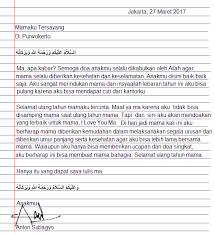 Jakarta, 27 Maret 2017
Mamaku Tersayang
Di Purwokerto
السَّلَامُ عَلَيْكُمْ وَرَحْمَةُ اللهِ وَبَرَكَاتُهُ
Ma, apa kabar? Semoga doa anakmu selalu dikabulkan oleh Allah agar
mama selalu diberikan kesehatan dan keselamatan. Anakmu disini baik-baik
saja. Aku sangat merindukan mama dan insyaallah lebaran tahun ini aku bisa
pulang karena aku bisa mendapat cuti dari kantorku.
Selamat ulang tahun mamaku tercinta. Maaf ya ma karena aku tidak bisa
disampingmu saat ulang tahun mama. Tapi dari sini aku akan mendoakan
yang terbaik untuk mama, I Love You Ma. Di hari jadi mama kali ini aku
berharap mama diberikan kemudahan dalam melaksanakan segala urusan dan
diberikan umur panjang serta kesehatan agar aku bisa lebih lama bersama
mama. Walaupun aku hanya bisa memberikan ucapan dan doa singkat,
aku berharap ini bisa membuat mama bahagia. Selamat ulang tahun mama.
Hanya itu yang dapat saya tulis ma
وَعَلَيْكُمُ السَّلَامُ وَرَحْمَةُ اللهِ وَبَرَكَاتُهُ
Anakmu
Anton Subagyo